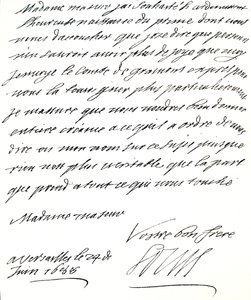 Madame ma sœur jai souhaité si ardemment
lheureuse naissance du prince dont vous
venes daccoucher que jose dire que personne
n'en scauroit avoir plus de joye que moy
jenvoye le Comte de gramont exprés pour
vous la temoigner plus particulierement
je massure que vous voudres bien donner
entiere créance a ce quil a ordre de vous
dire en mon nom sur ce sujet puisque
rien nest plus veritable que la part
que je prend a tout ce qui vous touche
Madame ma sœur
Vostre bon frere
Louis
a Versailles le 24 de
Juin 1688